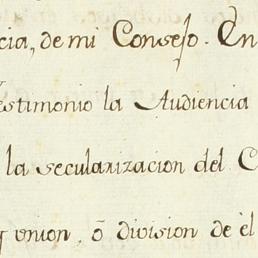 cia, de mi Consejo. En
estimonio la Audiencia
la secularizacion del C
union, ō division de èl